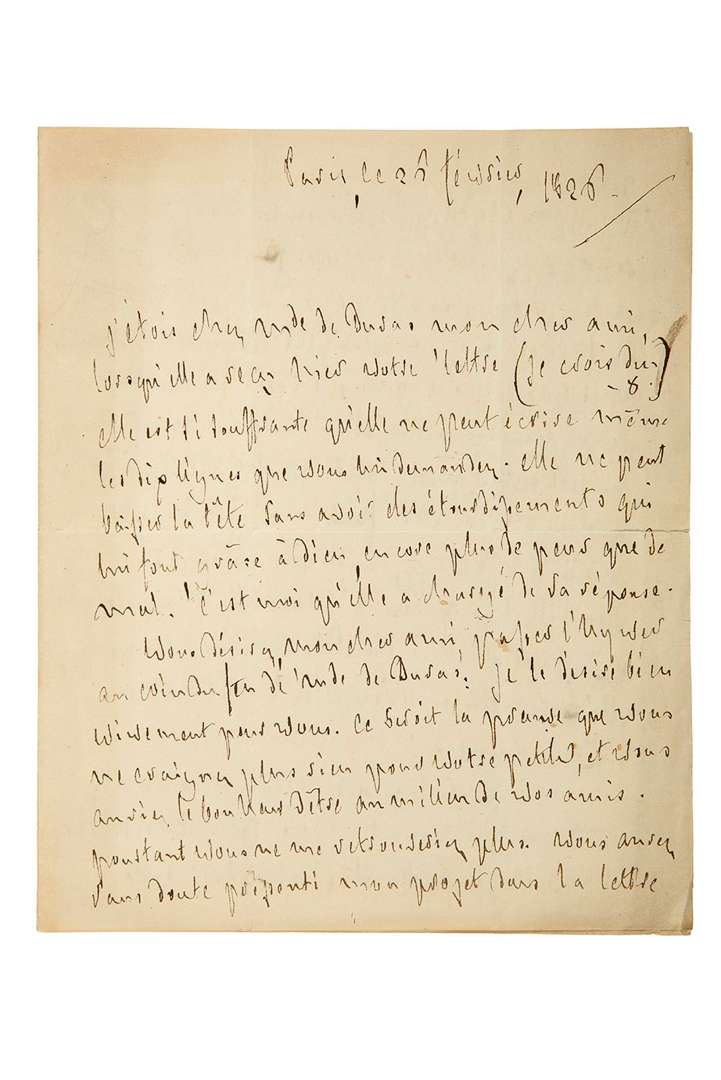 Paris, ce 26 février, 1826.
j'étois chez Mde de Duras mon cher ami,
lorsqu'elle a reçu hier votre lettre (je crois du
elle est si souffrante qu'elle ne peut écrire même
les dix lignes que vous lui demandez. elle ne peut
baisser la tête sans avoir des étourdissements qui
lui font grâce à dieu, encore plus de peur que de
mal. C'est moi qu'elle a chargé de sa réponse.
Vous désirez, mon cher ami, passer l'hyver
au coin du feu de Mde de Duras. je le désire bien
vivement pour vous. ce seroit la preuve que vous
ne craignez plus rien pour votre et vous
auriez le bonheur d'être au milieu de vos amis.
pourtant vous ne me retrouveriez plus. Vous aurez
sans doute pressenti mon projet dans la lettre